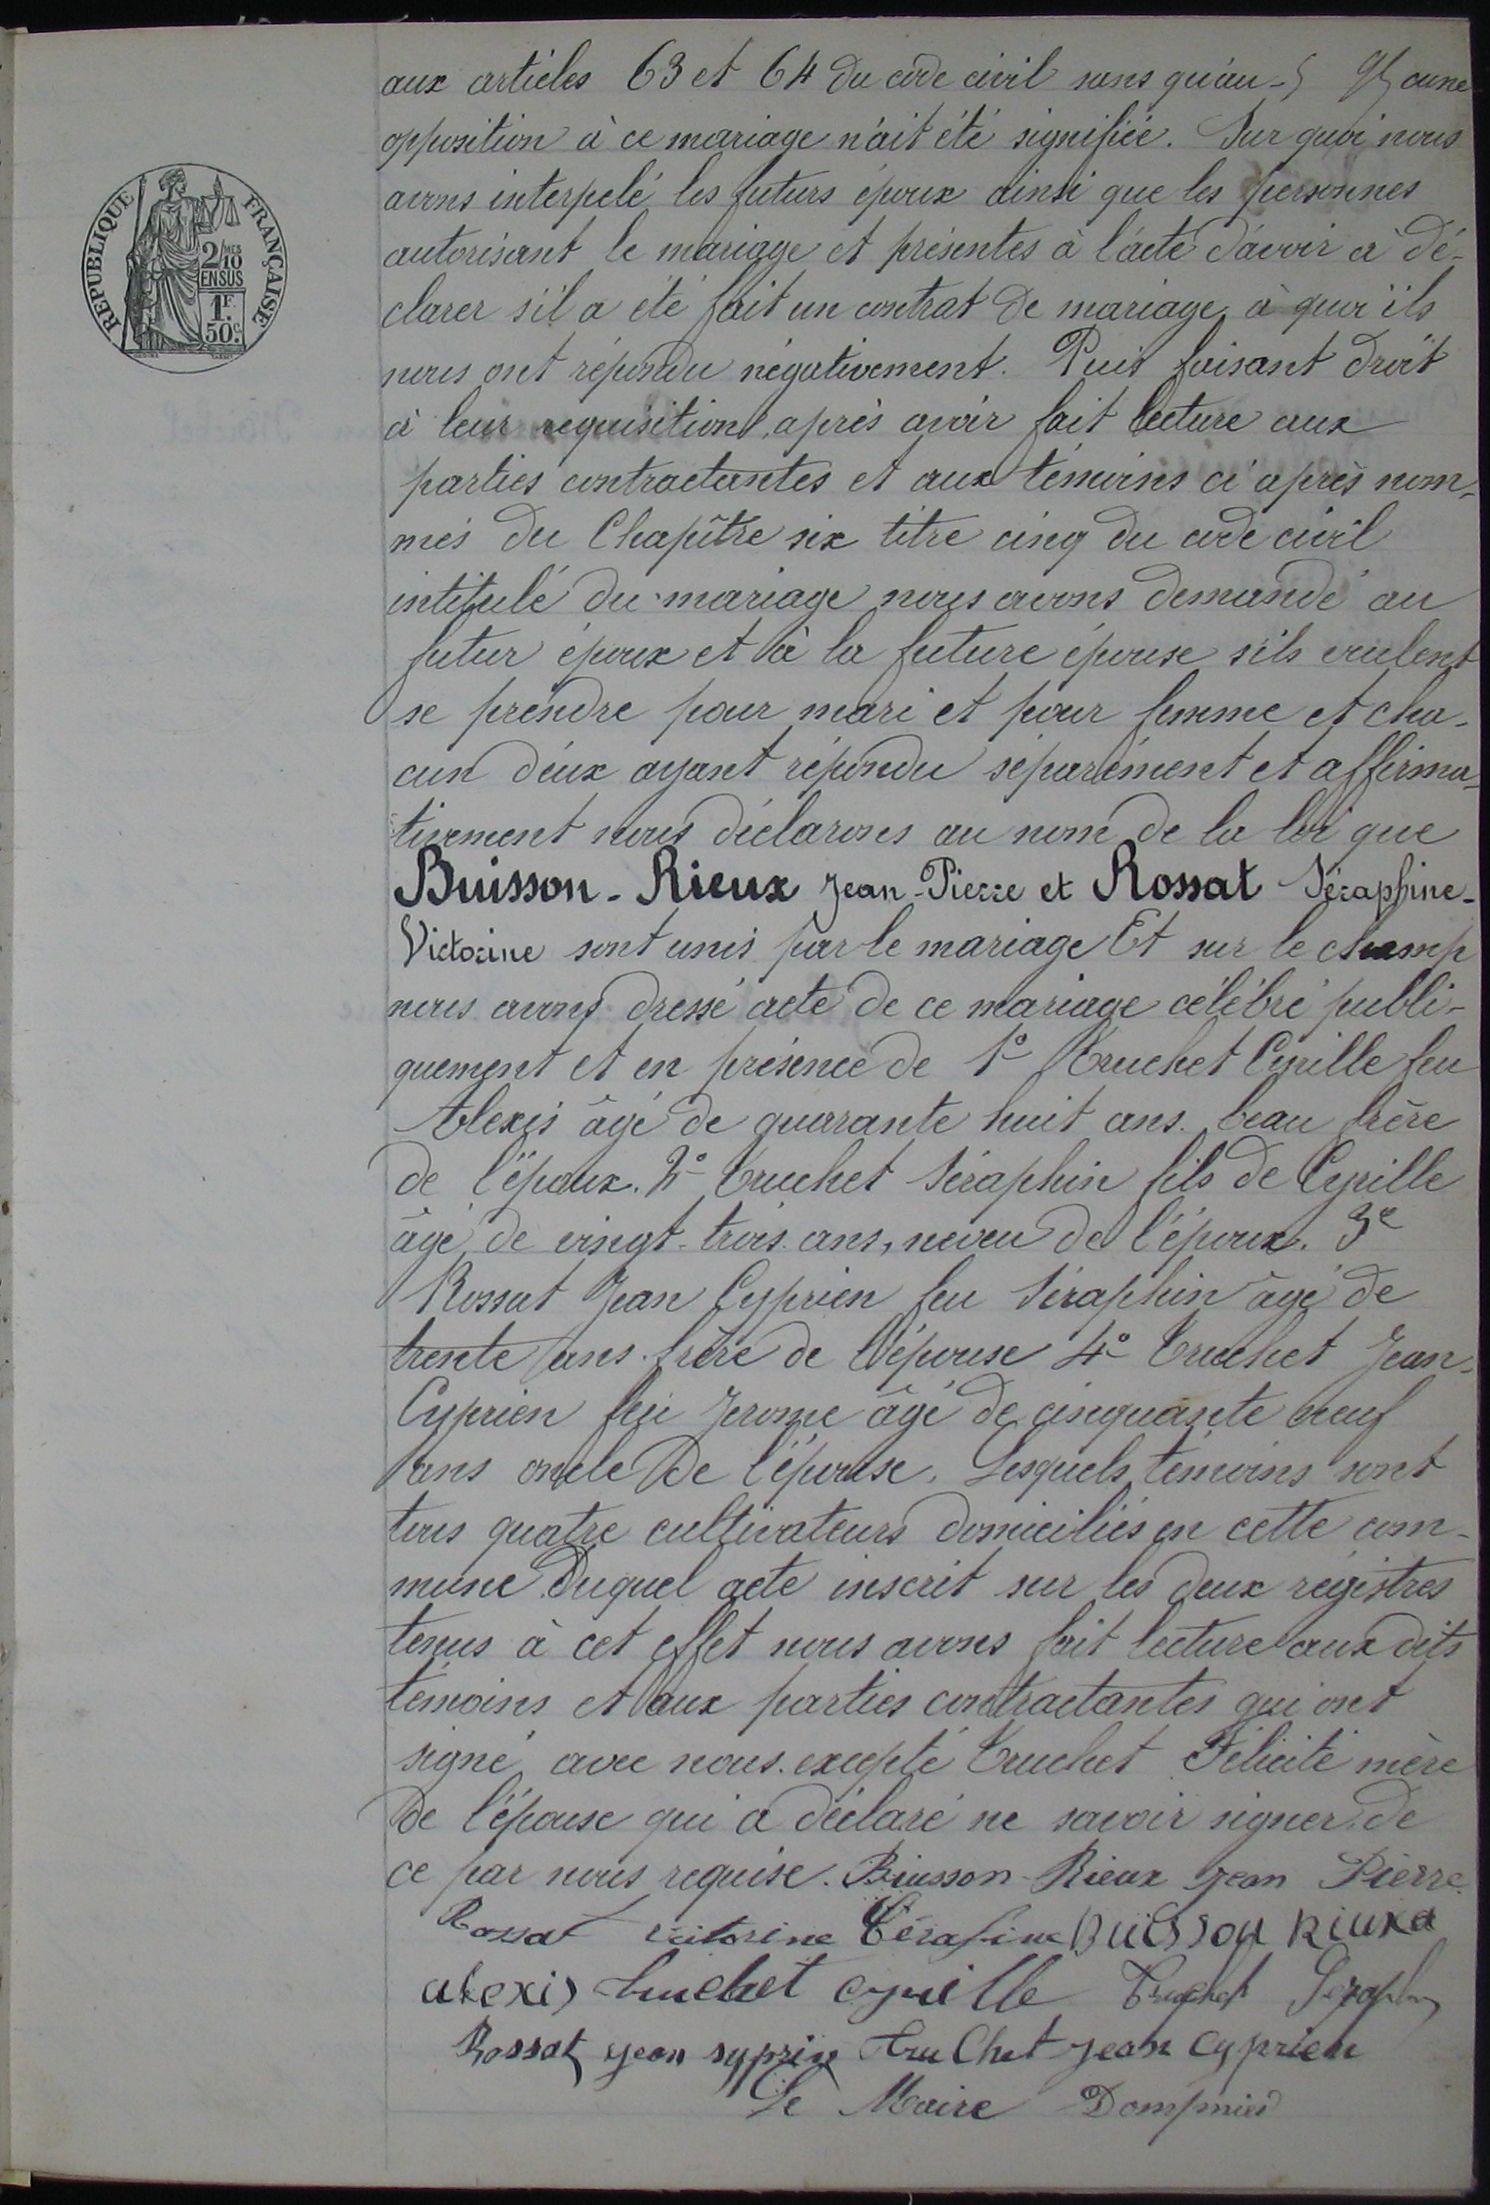 aux articles 63 et 64 du code civil sans qu'au- cune
opposition à ce mariage n'ait été signifiée. Sur quoi nous
avons interpelé les futurs époux ainsi que les personnes
autorisant le mariage et présentes à l'acte d'avoir à dé-
clarer s'il a été fait un contrat de mariage, à quoi ils
nous ont répondu négativement. Puis faisant droit
à leur requisition, après avoir fait lecture aux
parties contractantes et aux témoins ci après nom-
més du Chapître six titre cinq du code civil
intitulé du mariage nous avons demandé au
futur époux et à la future épouse s'ils veulent
se prendre pour mari et pour femme et cha-
cun d'eux ayant répondu séparément et affirma-
tivement nous déclarons au nom de la loi que
Buisson-Rieux Jean-Pierre et Rossat Séraphine-
Victorine sont unis par le mariage Et sur le champ
nous avons dressé acte de ce mariage célébré publi-
quement et en présence de 1° Truchet Cyrille feu
Alexis âgé de quarante huit ans. beau frère
de l'époux. 2° Truchet Séraphin fils de Cyrille
âgé de vingt-trois ans, neveu de l'époux. 3e
Rossat Jean Cyprien feu Séraphin âgé de
trente ans. frère de l'épouse 4° Truchet Jean-
Cyprien feu Jerome âgé de cinquante neuf
ans oncle de l'épouse. Lesquels témoins sont
tous quatre cultivateurs domiciliés en cette com-
mune Duquel acte inscrit sur les deux régistres
tenus à cet effet nous avons fait lecture aux dits
témoins et aux parties contractantes qui ont
signé avec nous. excepté Truchet Félicité mère
de l'épouse qui a déclaré ne savoir signer. de
ce par nous requise. Buisson-Rieux Jean Pierre
Rossat victorine Sérafine Buisson Riuxa
alexis truchet cyrille Truchet Seraphin
Rossat jean syprin truChet jean cyprien
Le Maire Dompnier
RÉPUBLIQUE FRANÇAISE
2/10 MES
EN SUS
1F.
50c.